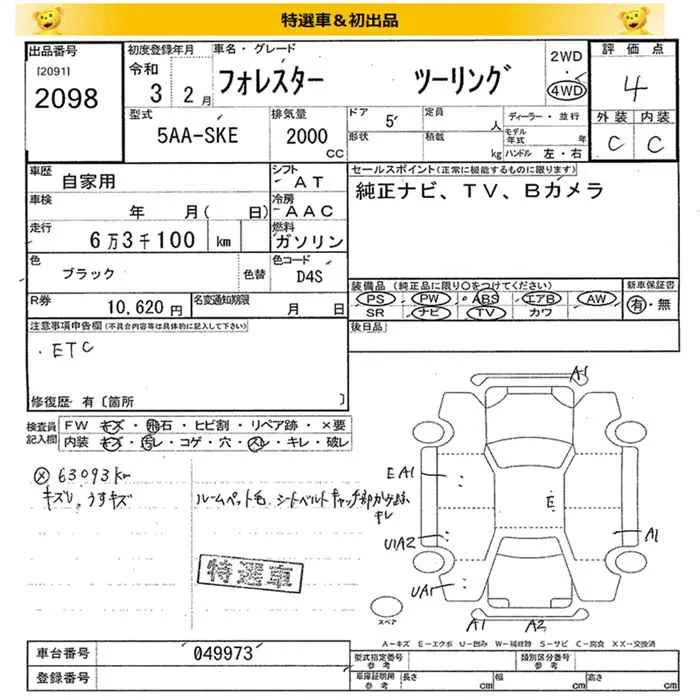 特選車＆初出品
出品番号
[2091]
2098
初度登録年月
令和
3 2月
車名・グレード
フォレスター ツーリング
2WD
4WD
評価点
4
外装 内装
C C
型式
5AA-SKE
排気量
2000
CC
ドア
5
形状
定員
人
積載
kg
ディーラー・並行
モデル年式 年
ハンドル 左・右
車歴
自家用
シフト
AT
車検
年 月( 日)
冷房
AAC
走行
6万3千100 km
燃料
ガソリン
色
ブラック
色替
色コード
D4S
R券
10,620 円
名変通知期限
月 日
セールスポイント(正常に機能するものに限ります)
純正ナビ、TV、Bカメラ
装備品 (純正品に限り○をつけてください)
新車保証書
PS PW ABS エアB AW
SR ナビ TV カワ
有・無
後日品
注意事項申告欄(不具合内容等は具体的に記入して下さい)
・ETC
修復歴 有〔箇所 〕
検査員記入欄
FW キズ・飛石・ヒビ割・リペア跡・×要
内装 キズ・汚レ・コゲ・穴・スレ・キレ・破レ
63093km
キズリ、うすキズ
ルームペット毛、シートベルトキャッチ部
キレ
特選車
A1
EA1
E
U1A2
A1
UA1
A1
A2
スペア
A-キズ E-エクボ U-凹み W-補修跡 S-サビ C-腐食 XX-交換済
車台番号
049973
登録番号
型式指定番号
参考
類別区分番号
参考
車庫証明用
参考
長さ cm
幅 cm
高さ cm